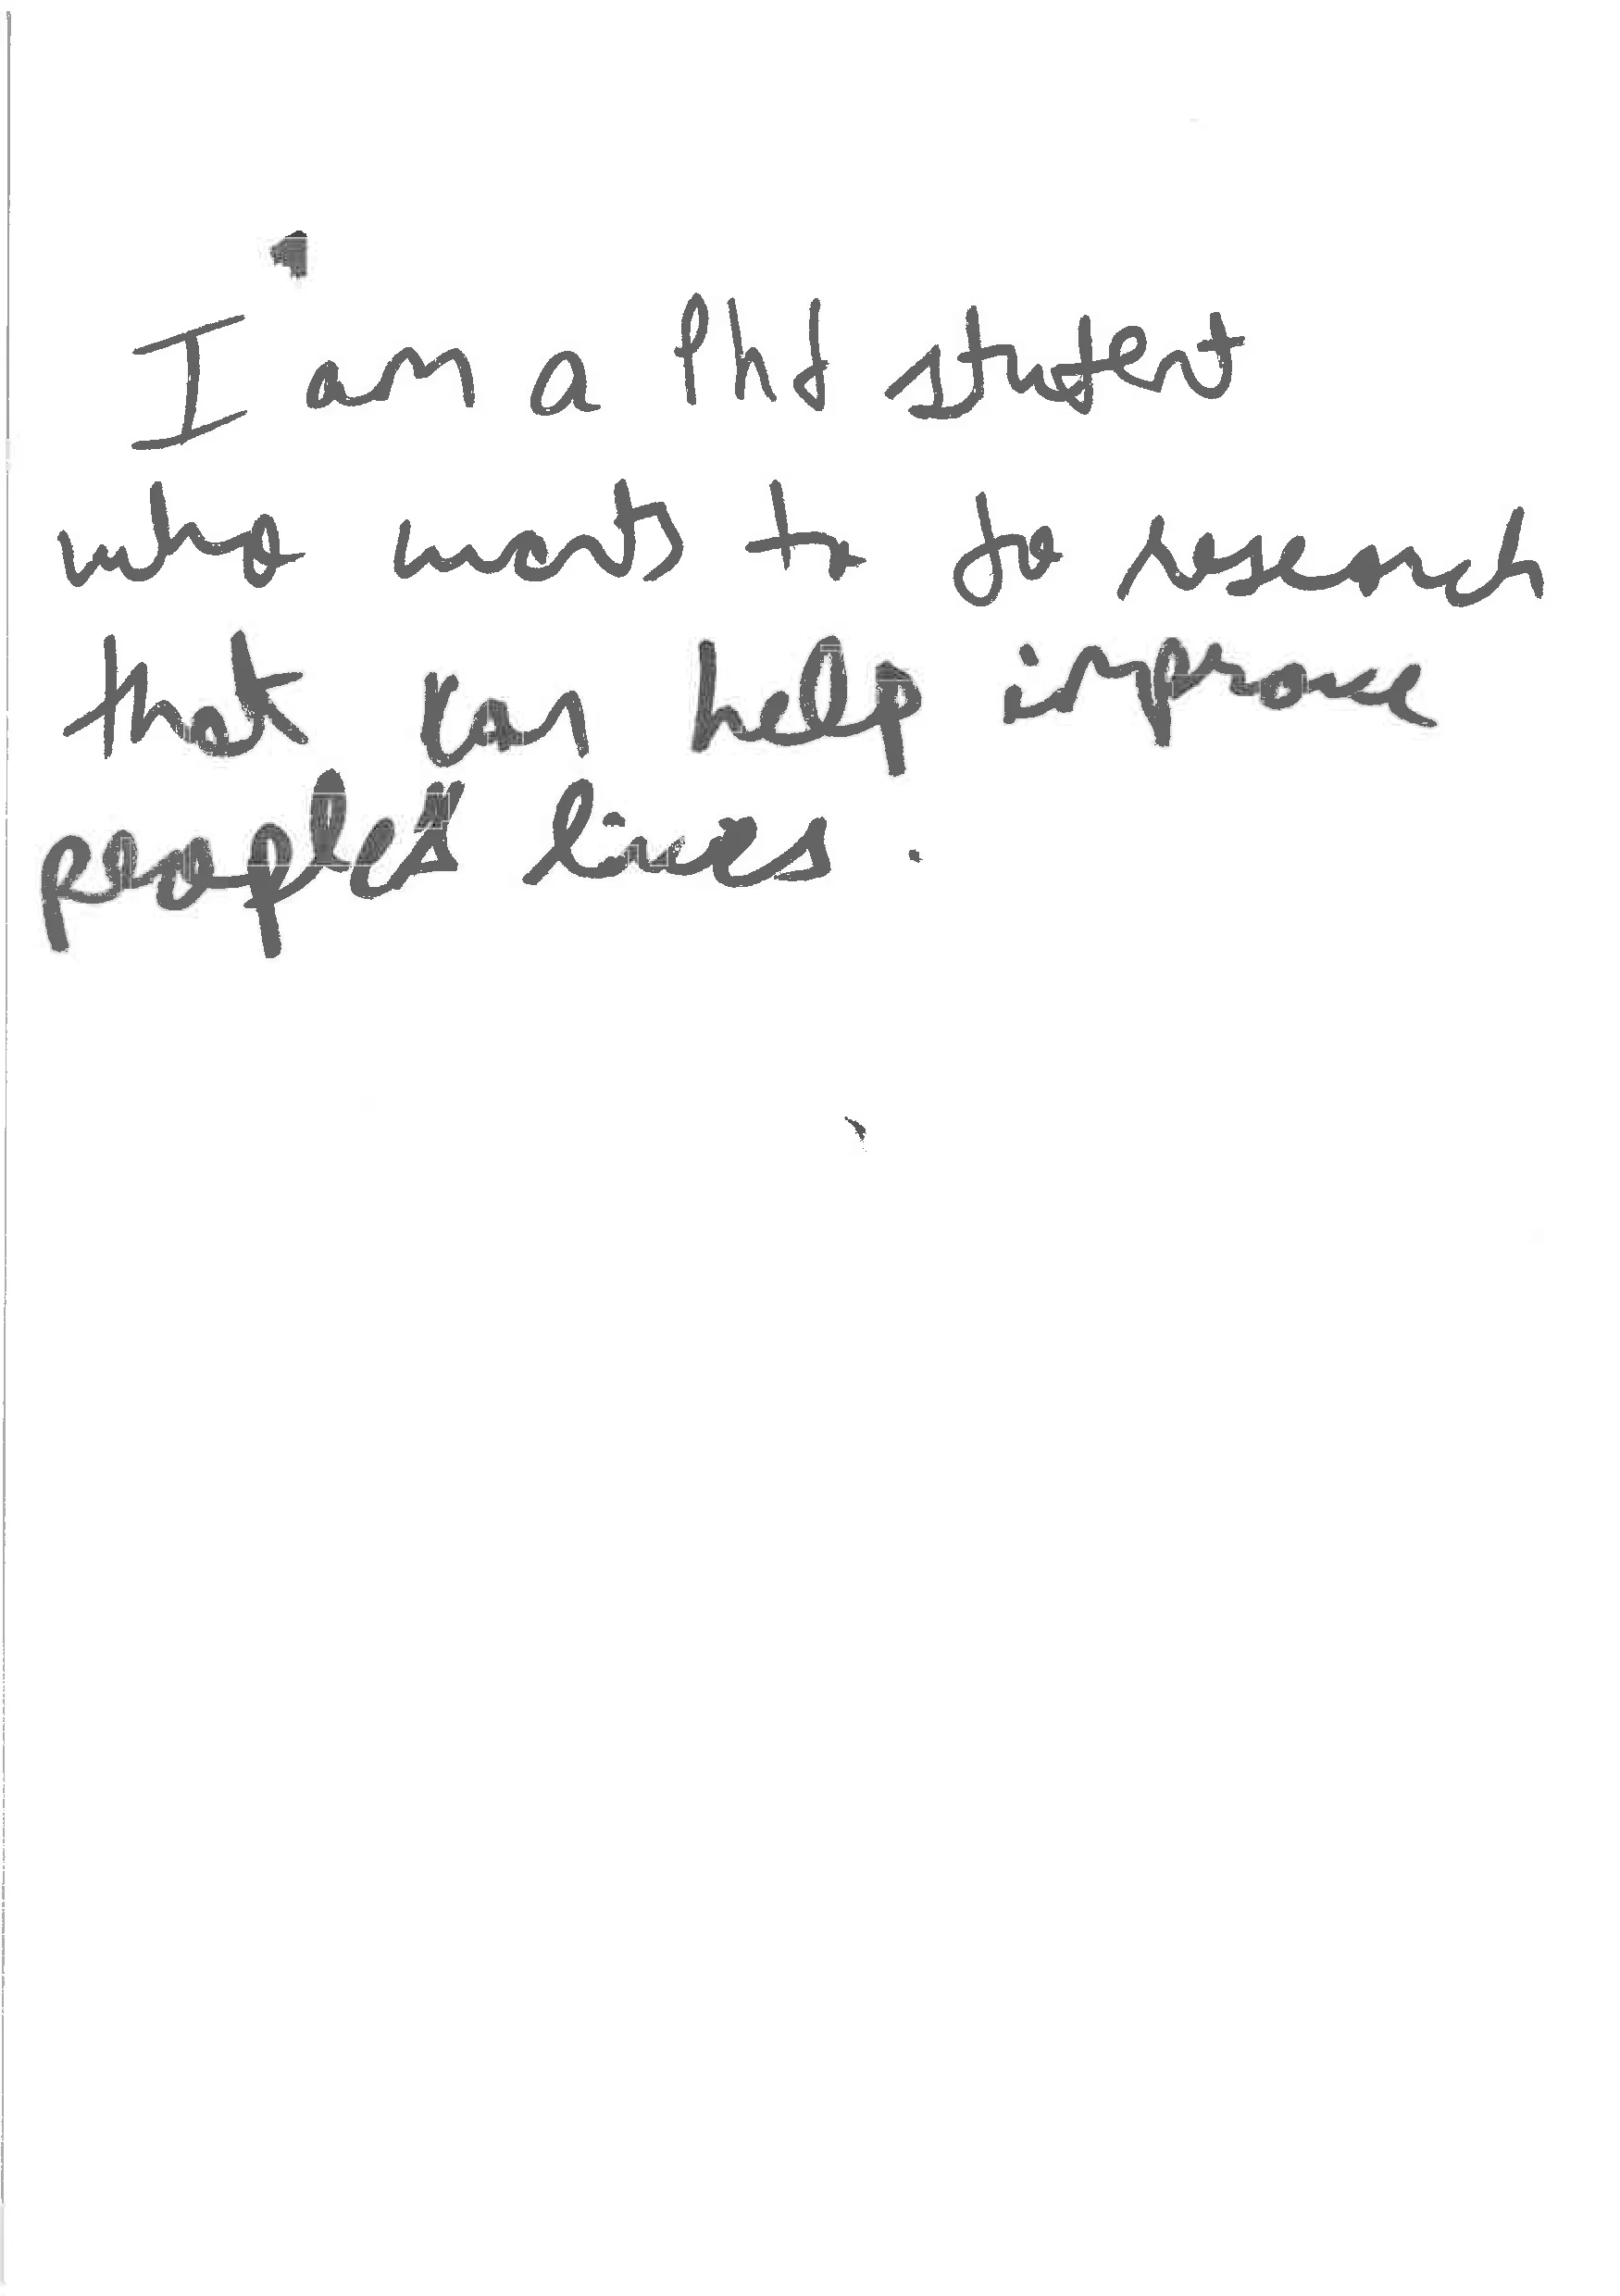 I am a Phd student
who wants to do research
that can help improve
people's lives.